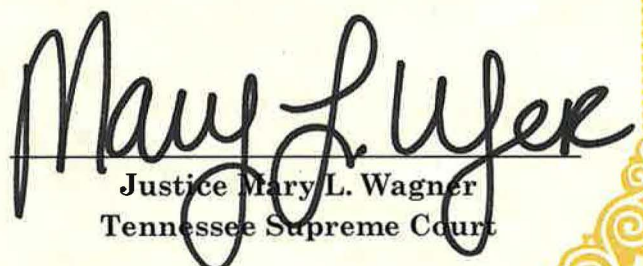 Mary L. Wagner
Justice Mary L. Wagner
Tennessee Supreme Court